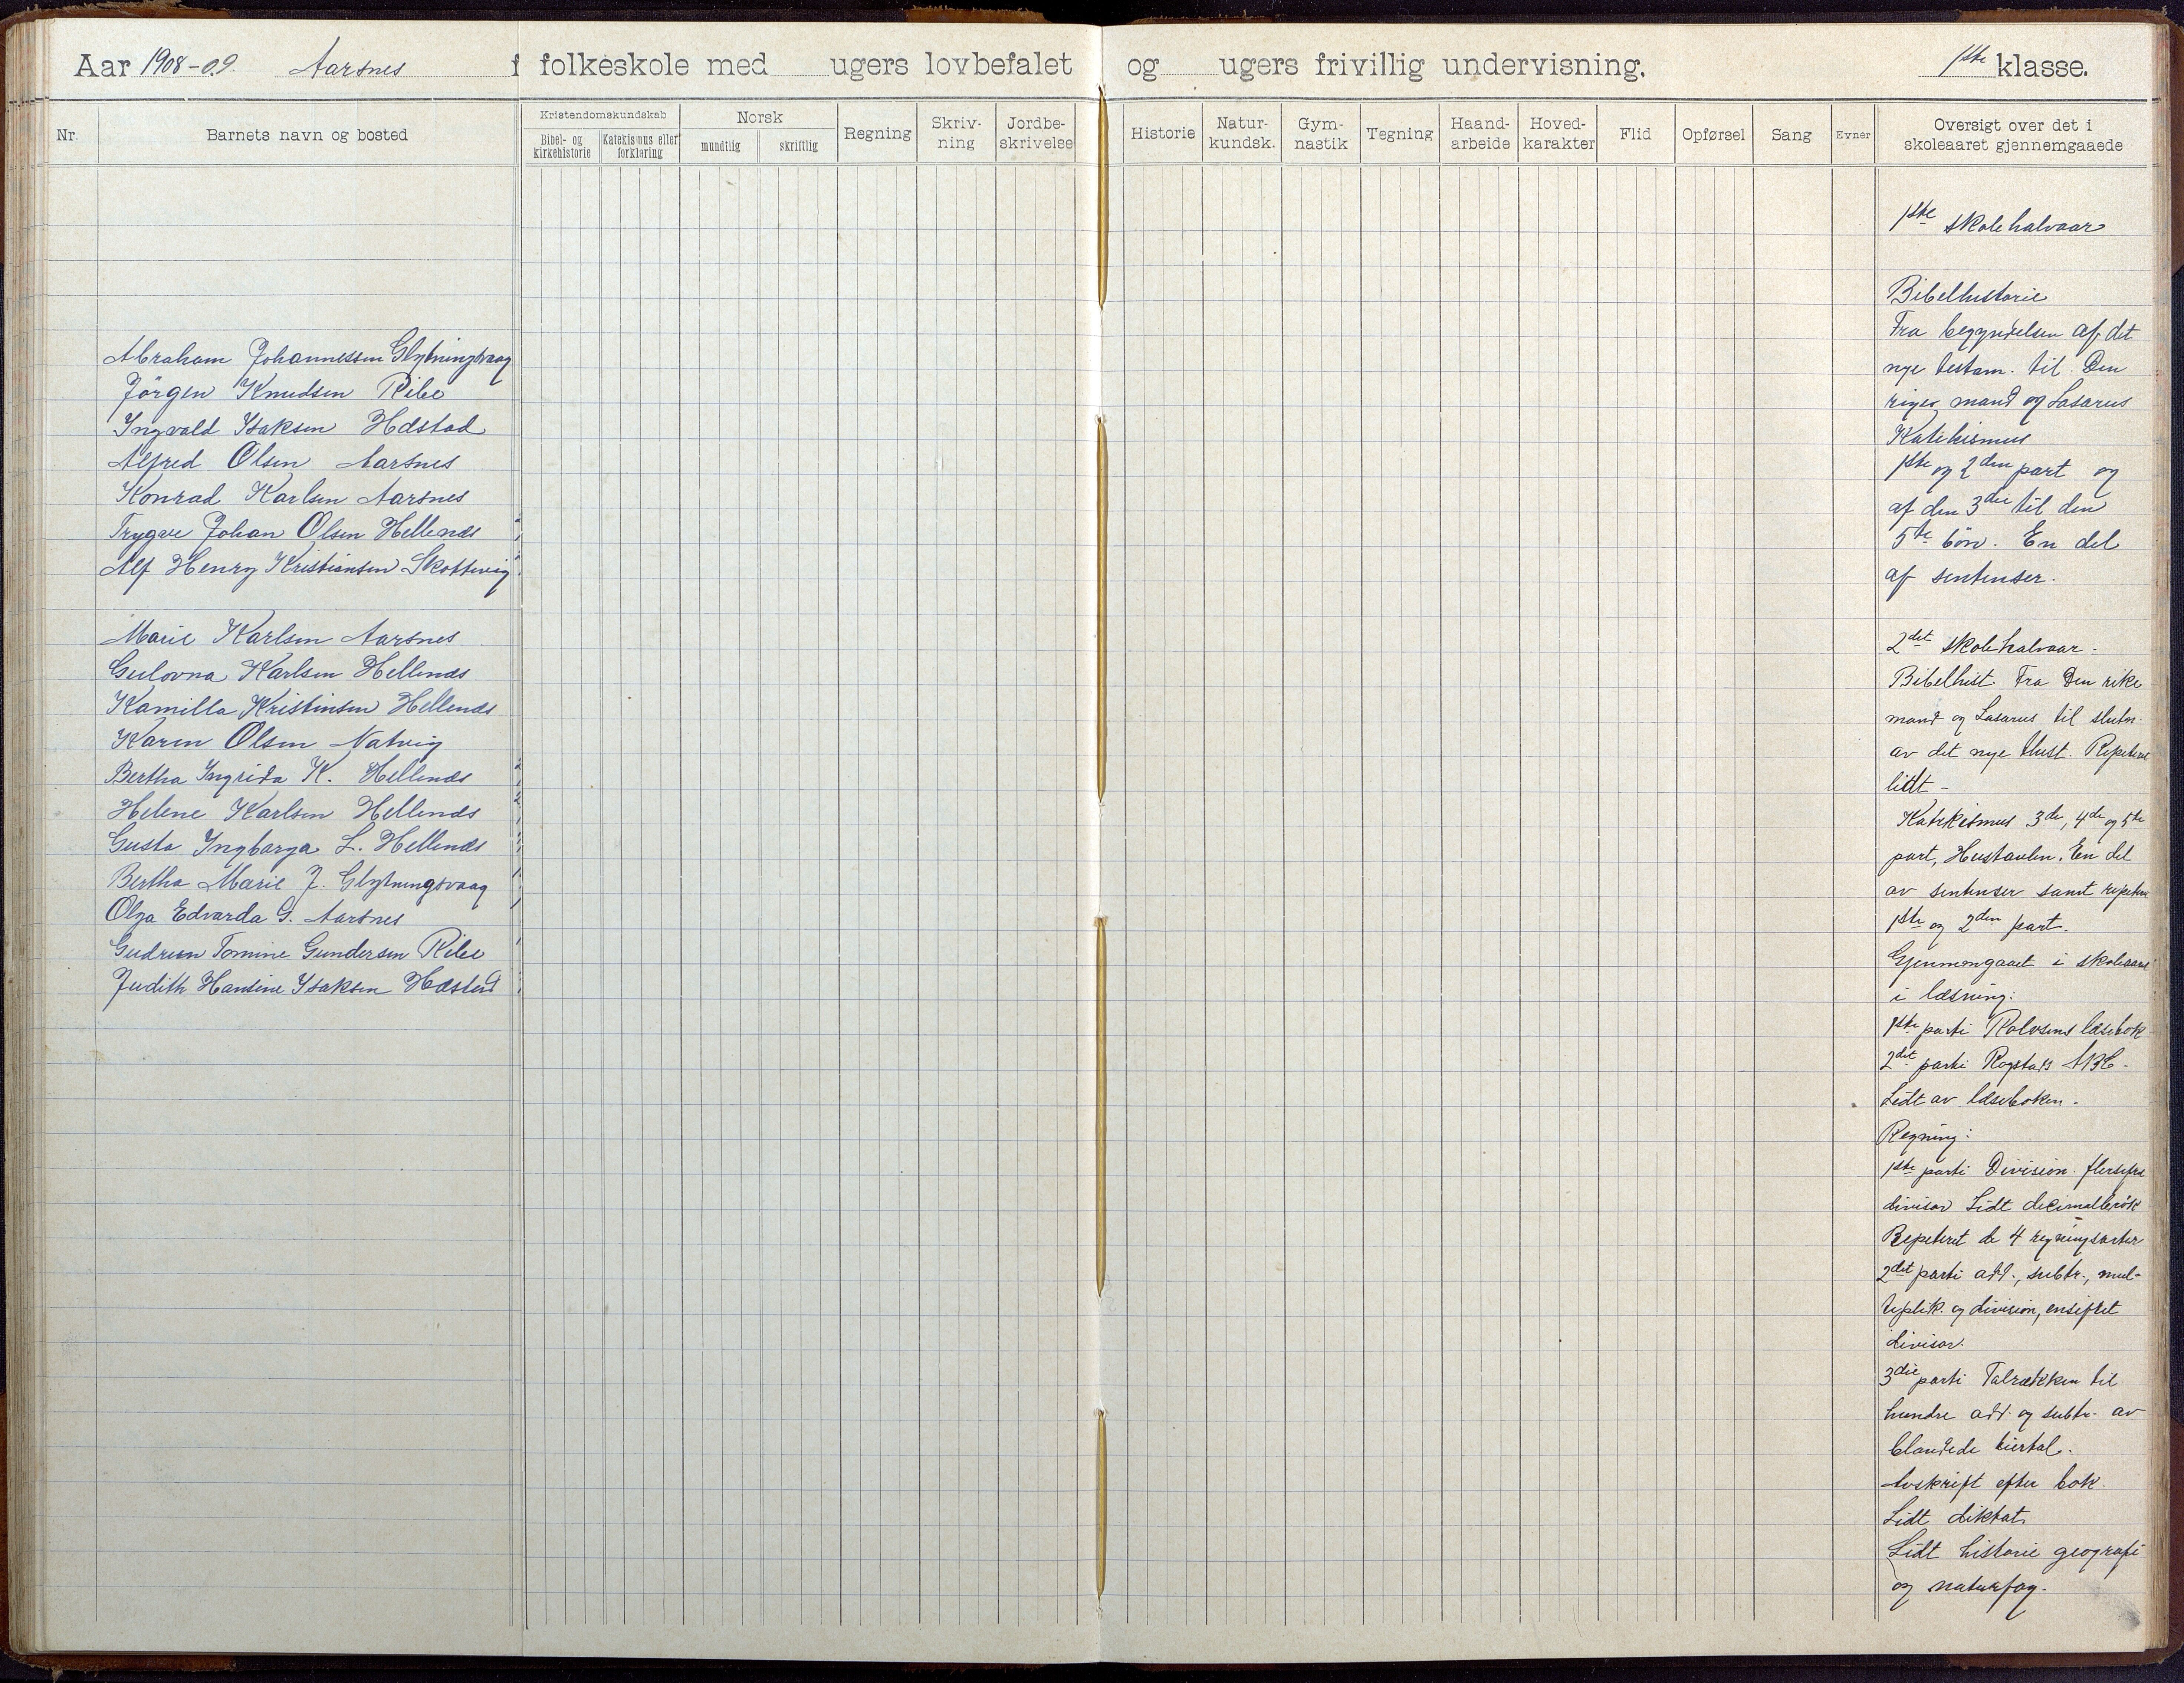 Aar 1908-09. Aarsnes folkeskole med ugers lovbefalet og ugers frivillig undervisning. 1ste klasse.
Nr. Barnets navn og bosted
Kristendomskundskab
Bibel- og kirkehistorie
Katekismus eller forklaring
Norsk
mundtlig skriftlig
Regning
Skriv-ning
Jordbe-skrivelse
Historie
Natur-kundsk.
Gym-nastik
Tegning
Haand-arbeide
Hoved-karakter
Flid
Opførsel
Sang
Evner
Oversigt over det i skoleaaret gjennemgaaede
Abraham Johannessen Glytningsvaag
Jörgen Knudsen Ribe
Ingvald Isaksen Hæstad
Alfred Olsen Aarsnes
Konrad Karlsen Aarsnes
Trygve Johan Olsen Hellenæs
Alf Henry Kristiansen Skottevig
Marie Karlsen Aarsnes
Gulovna Karlsen Hellenæs
Kamilla Kristensen Hellenæs
Karen Olsen Natvig
Bertha Ingrida K. Hellenæs
Helene Karlsen Hellenæs
Gusta Ingbarga L. Hellenæs
Bertha Marie J. Glytningsvaag
Olga Edvarda G. Aarsnes
Gudrun Tomine Gundersen Ribe
Judith Hansine Isaksen Hæstad
1ste skolehalvaar
Bibelhistorie
Fra begyndelsen af det
nye testam. til Den
riges mand og Lasarus
Katekismus
1ste og 2den part og
af den 3die til den
5te bön. En del
af sentenser.
2det skolehalvaar.
Bibelhist. Fra Den rike
mand og Lasarus til slutn.
av det nye test. Repeteret
lidt -
Katekismus 3die, 4de og 5te
part, Hustavlen. En del
av sentenser samt repeteret
1ste og 2den part.
Gjennemgaaet i skoleaaret
i læsning:
1ste parti Rolvsens læsebok
2det parti Rogstads ABC.
Lidt av læseboken.
Regning:
1ste parti Division flersifret
divisor Lidt decimalbrök
Repeteret de 4 regningsarter
2det parti add., subtr., mul-
tiplik. og division, ensifret
divisor.
3die parti Talrækken til
hundre add. og subtr. av
blandede tiertal.
Avskrift efter bok.
Lidt diktat.
Lidt historie geografi
og naturfag.